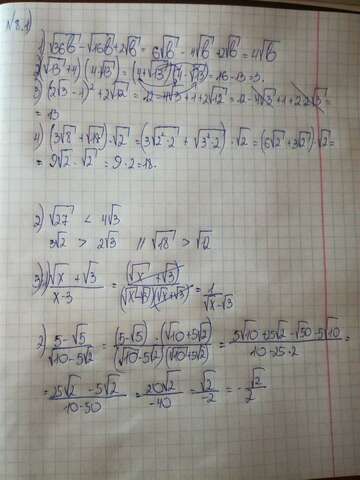 №8. 1)
1) √36b - √16b + 2√b = 6√b - 4√b + 2√b = 4√b
2) (√13 + 4)(4 - √13) = (4 + √13)(4 - √13) = 16 - 13 = 3.
3) (2√3 - 1)² + 2√12 = 12 - 4√3 + 1 + 2√12 = 12 - 4√3 + 1 + 2·2√3 =
= 13
4) (3√8 + √18)·√2 = (3√2²·2 + √3²·2)·√2 = (6√2 + 3√2)·√2 =
= 9√2 · √2 = 9·2 = 18.
2) √27 < 4√3
3√2 > 2√3 // √18 > √12
3) 1) (√x + √3)/(x - 3) = (√x + √3)/((√x - √3)(√x + √3)) = 1/(√x - √3)
2) (5 - √5)/(√10 - 5√2) = (5 - √5)·(√10 + 5√2)/((√10 - 5√2)(√10 + 5√2)) = (5√10 + 25√2 - √50 - 5√10)/(10 - 25·2) =
= (25√2 - 5√2)/(10 - 50) = 20√2/-40 = √2/-2 = - √2/2